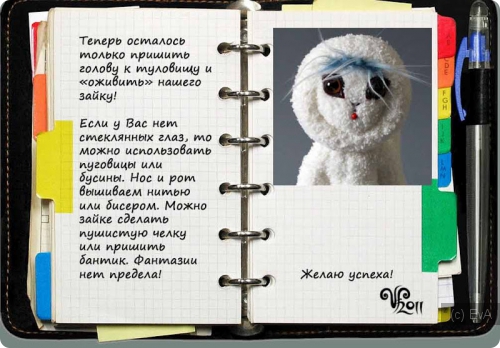 Теперь осталось
только пришить
голову к туловищу и
«оживить» нашего
зайку!
Если у Вас нет
стеклянных глаз, то
можно использовать
пуговицы или
бусины. Нос и рот
вышиваем нитью
или бисером. Можно
зайке сделать
пушистую челку
или пришить
бантик. Фантазии
нет предела!
Желаю успеха!
2011
(c) EvA